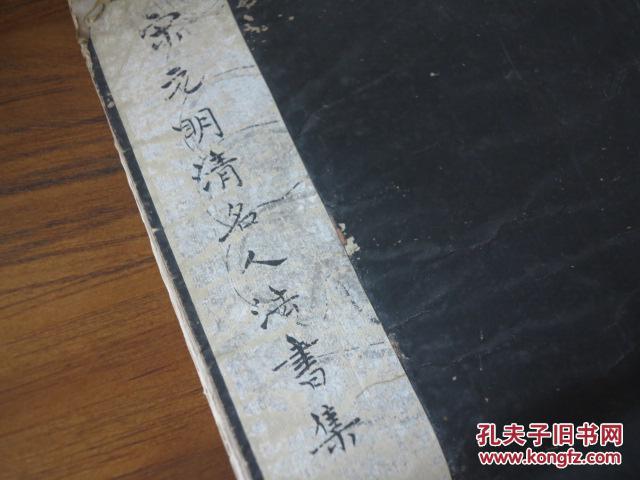 宋元明清名人法書集
孔夫子旧书网
www.kongfz.com